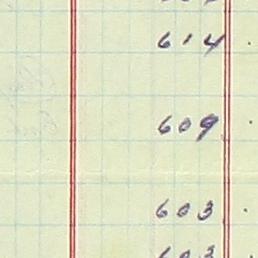 614
609
603